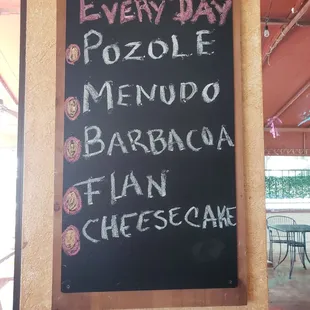 EVERY DAY
POZOLE
MENUDO
BARBACOA
FLAN
CHEESECAKE